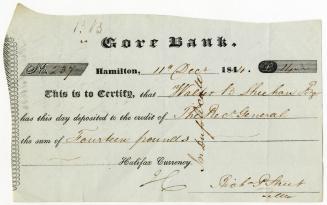 Gore Bank.
No. 237
Hamilton, 11th Decr 1844. £ 14
This is to Certify, that Walter B. Sheehan Esq
has this day deposited to the credit of The Recr General
the sum of Fourteen pounds
Halifax Currency.
in duplicate
Teller